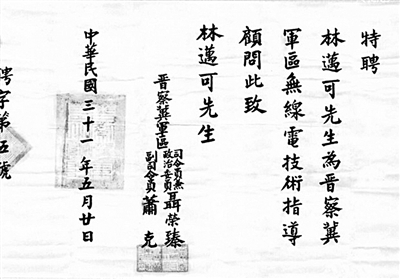 特聘
林邁可先生為晉察冀
軍區無線電技術指導
顧問此致
林邁可先生
晉察冀軍區
司令員兼
政治委員聶榮臻
副司令員蕭克
中華民國三十一年五月廿日
聘字第五號